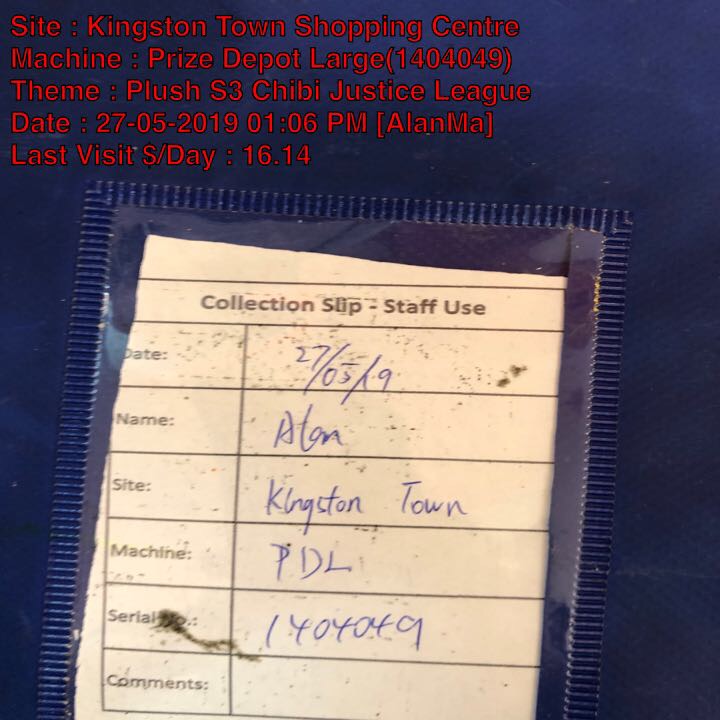 Site : Kingston Town Shopping Centre
Machine : Prize Depot Large(1404049)
Theme : Plush S3 Chibi Justice League
Date : 27-05-2019 01:06 PM [AlanMa]
Last Visit $/Day : 16.14
Collection Slip - Staff Use
Date: 27/05/19
Name: Alan
Site: Kingston Town
Machine: PDL
Serial No.: 1404049
Comments: